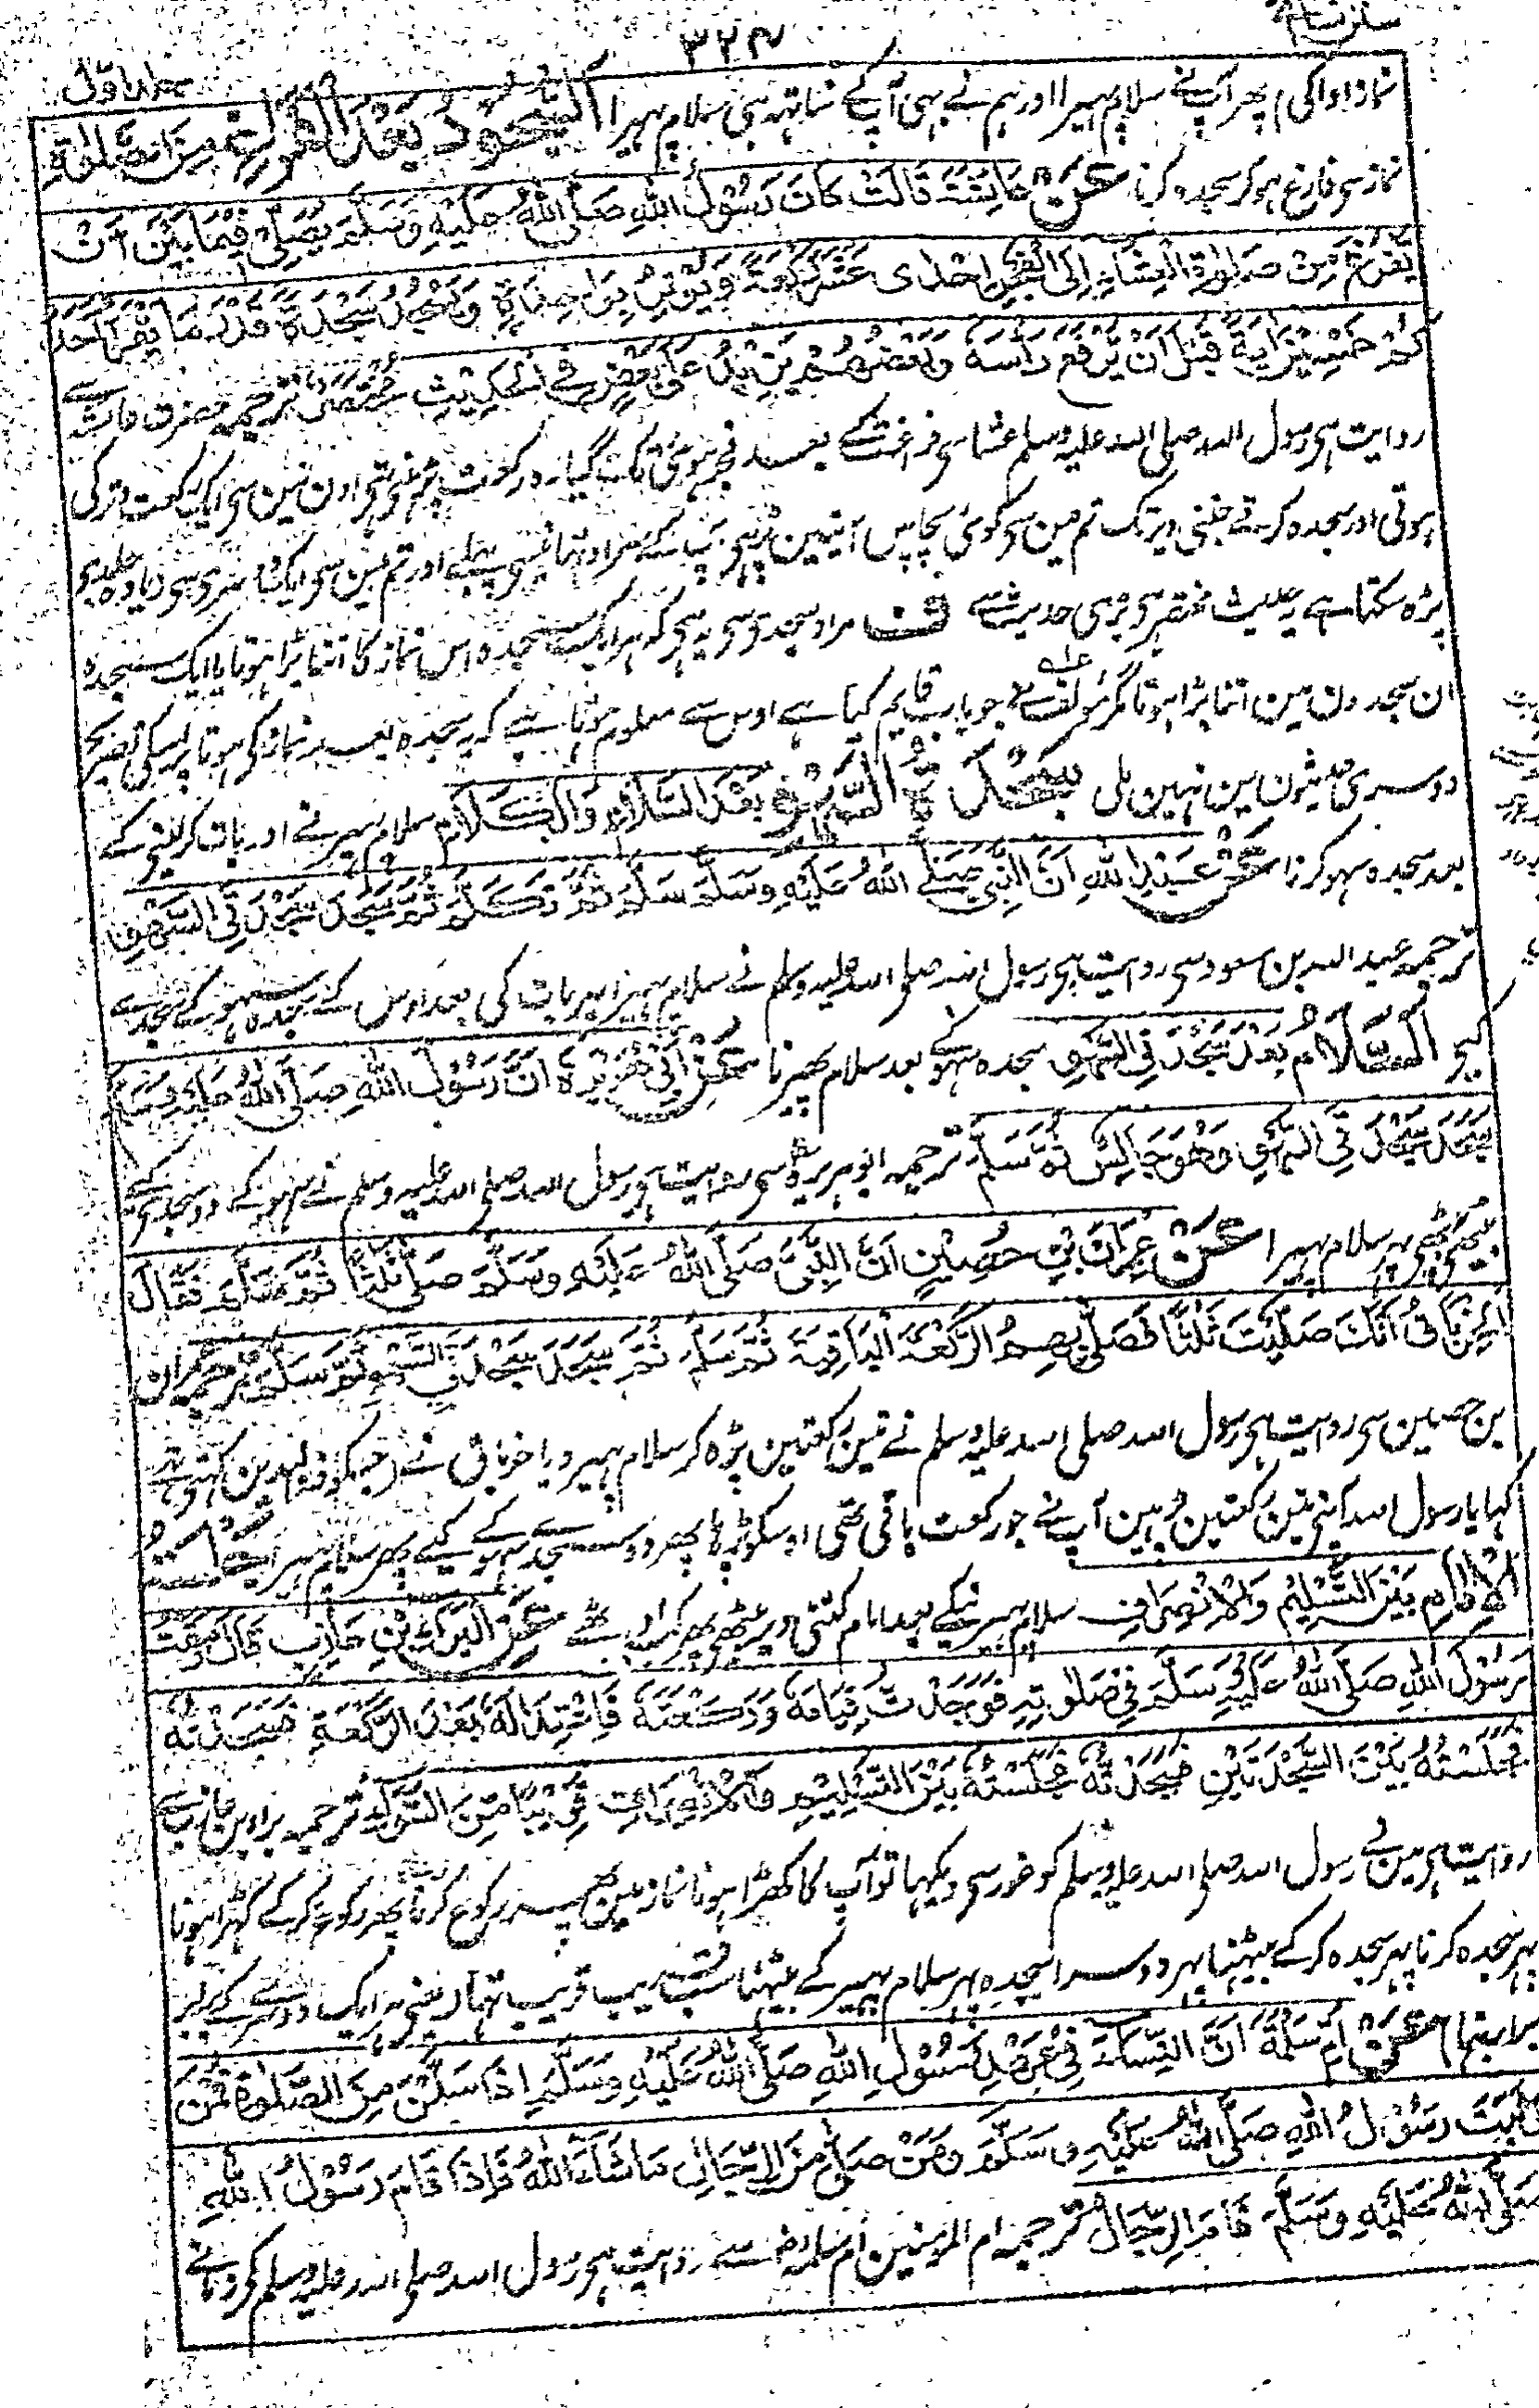 ۳۲۴
جلد اول
نماز ادا کی پھر آپ نے سلام پھیرا اور ہم نے بھی آپ کے ساتھ ہی سلام پھیرا السُّجُوْدُ بَعْدَ الْفَرَاغِ مِنَ الصَّلٰوةِ
نماز سی فارغ ہو کر سجدہ کرنا عَنْ عَائِشَةَ قَالَتْ كَانَ رَسُوْلُ اللّٰهِ صَلَّى اللّٰهُ عَلَيْهِ وَسَلَّمَ يُصَلِّيْ فِيْمَا بَيْنَ اَنْ
يَفْرُغَ مِنْ صَلٰوةِ الْعِشَاءِ اِلَى الْفَجْرِ اِحْدٰى عَشْرَةَ رَكْعَةً وَيُوْتِرُ بِوَاحِدَةٍ وَيَسْجُدُ سَجْدَةً قَدْرَ مَا يَقْرَأُ اَحَدُ
كُمْ خَمْسِيْنَ اٰيَةً قَبْلَ اَنْ يَّرْفَعَ رَأْسَهُ وَبَعْضُهُمْ يَزِيْدُ عَلٰى بَعْضٍ فِي الْحَدِيْثِ مُخْتَصَرٌ ترجمہ حضرت عائشہ سے
روایت ہی رسول اللہ صلی اللہ علیہ وسلم عشا سی فراغت کے بعد فجر ہونی تک گیارہ رکعت پڑہتی تہی اون مین سی ایک رکعت وتر کی
ہوتی اور سجدہ کرتے جتنی دیر تک تم مین سی کوئی پچاس آیتین پڑہی آپ کے سر اوٹہانیسی پہلے اور تم مین سی ایک دوسری سی زیادہ جلدی
پڑہ سکتا ہے یہ حدیث مختصر ہی بڑی حدیث سے ف مراد سجدی سی یہ ہی کہ ہر ایک سجدہ اس نماز کا اتنا بڑا ہوتا یا ایک سجدہ
ان سجدون مین اتنا بڑا ہوتا مگر مؤلف نے جو باب قایم کیا ہے اوس سے معلوم ہوتا ہے کہ یہ سجدہ بعد نماز کی ہوتا پر اسکی تصریح
دوسری حدیثون مین نہین ملی سَجْدَتَيِ السَّهْوِ بَعْدَ السَّلَامِ وَالْكَلَامِ سلام پھیرنے اور بات کرلینی کے
بعد سجدہ سہو کرنا عَنْ عَبْدِ اللّٰهِ اَنَّ النَّبِيَّ صَلَّى اللّٰهُ عَلَيْهِ وَسَلَّمَ سَلَّمَ ثُمَّ تَكَلَّمَ ثُمَّ سَجَدَ سَجْدَتَيِ السَّهْوِ
ترجمہ عبد اللہ بن مسعود سی روایت ہی رسول اللہ صلی اللہ علیہ وسلم نے سلام پھیرا پھر بات کی بعد اوس کے سہو کے سجدے
کیے السَّلَامُ بَعْدَ سَجْدَتَيِ السَّهْوِ سجدہ سہو کے بعد سلام پھیرنا عَنْ اَبِيْ هُرَيْرَةَ اَنَّ رَسُوْلَ اللّٰهِ صَلَّى اللّٰهُ عَلَيْهِ وَسَلَّمَ
سَجَدَ سَجْدَتَيِ السَّهْوِ وَهُوَ جَالِسٌ ثُمَّ سَلَّمَ ترجمہ ابو ہریرہ سی روایت ہی رسول اللہ صلی اللہ علیہ وسلم نے سہو کے دو سجدی کیے
بیٹھی بیٹھی پہر سلام پہیرا عَنْ عِمْرَانَ بْنِ حُصَيْنٍ اَنَّ النَّبِيَّ صَلَّى اللّٰهُ عَلَيْهِ وَسَلَّمَ صَلّٰى ثَلٰثًا ثُمَّ سَلَّمَ فَقَالَ
الْخِرْبَاقُ اِنَّكَ صَلَّيْتَ ثَلٰثًا فَصَلّٰى بِهِمُ الرَّكْعَةَ الْبَاقِيَةَ ثُمَّ سَلَّمَ ثُمَّ سَجَدَ سَجْدَتَيِ السَّهْوِ ثُمَّ سَلَّمَ ترجمہ عمران
بن حصین سی روایت ہی رسول اللہ صلی اللہ علیہ وسلم نے تین رکعتین پڑہ کر سلام پہیر دیا خرباق نے جسکو ذوالیدین کہتی تھے
کہا یا رسول اللہ آپنی تین رکعتین پڑہین آپ نے جو رکعت باقی تھی اوسکو پڑہا پہر دو سجدے سہو کے کیے پھر سلام پہیرا جَلْسَةُ
الْاِمَامِ بَيْنَ التَّسْلِيْمِ وَالْاِنْصِرَافِ سلام پہیرنیکے بعد امام کتنی دیر بیٹھی پھر کر اوٹھے عَنِ الْبَرَاءِ بْنِ عَازِبٍ قَالَ رَمَقْتُ
رَسُوْلَ اللّٰهِ صَلَّى اللّٰهُ عَلَيْهِ وَسَلَّمَ فِيْ صَلٰوتِهِ فَوَجَدْتُ قِيَامَهُ وَرَكْعَتَهُ فَاعْتِدَالَهُ بَعْدَ الرَّكْعَةِ فَسَجْدَتَهُ
فَجَلْسَتَهُ بَيْنَ السَّجْدَتَيْنِ فَسَجْدَتَهُ فَجَلْسَتَهُ بَيْنَ التَّسْلِيْمِ وَالْاِنْصِرَافِ قَرِيْبًا مِّنَ السَّوَاءِ ترجمہ براء بن عازب سے
روایت ہی مین نے رسول اللہ صلی اللہ علیہ وسلم کو غور سی دیکہا تو آپ کا کھڑا ہونا نماز مین پھر رکوع کرنا پھر رکوع کرکے کہڑا ہونا
پہر سجدہ کرنا پہر سجدہ کرکے بیٹہنا پہر دوسرا سجدہ پہر سلام پہیر کے بیٹہنا سب قریب قریب تہا یعنی ہر ایک دوسرے کے برابر
برابر تہا عَنْ اُمِّ سَلَمَةَ اَنَّ النِّسَاءَ فِيْ عَهْدِ رَسُوْلِ اللّٰهِ صَلَّى اللّٰهُ عَلَيْهِ وَسَلَّمَ اِذَا سَلَّمْنَ مِنَ الصَّلٰوةِ قُمْنَ
وَثَبَتَ رَسُوْلُ اللّٰهِ صَلَّى اللّٰهُ عَلَيْهِ وَسَلَّمَ وَمَنْ صَلّٰى مِنَ الرِّجَالِ مَا شَاءَ اللّٰهُ فَاِذَا قَامَ رَسُوْلُ اللّٰهِ
صَلَّى اللّٰهُ عَلَيْهِ وَسَلَّمَ قَامَ الرِّجَالُ ترجمہ ام المومنین ام سلمہ سے روایت ہی رسول اللہ صلی اللہ علیہ وسلم کی زمانے